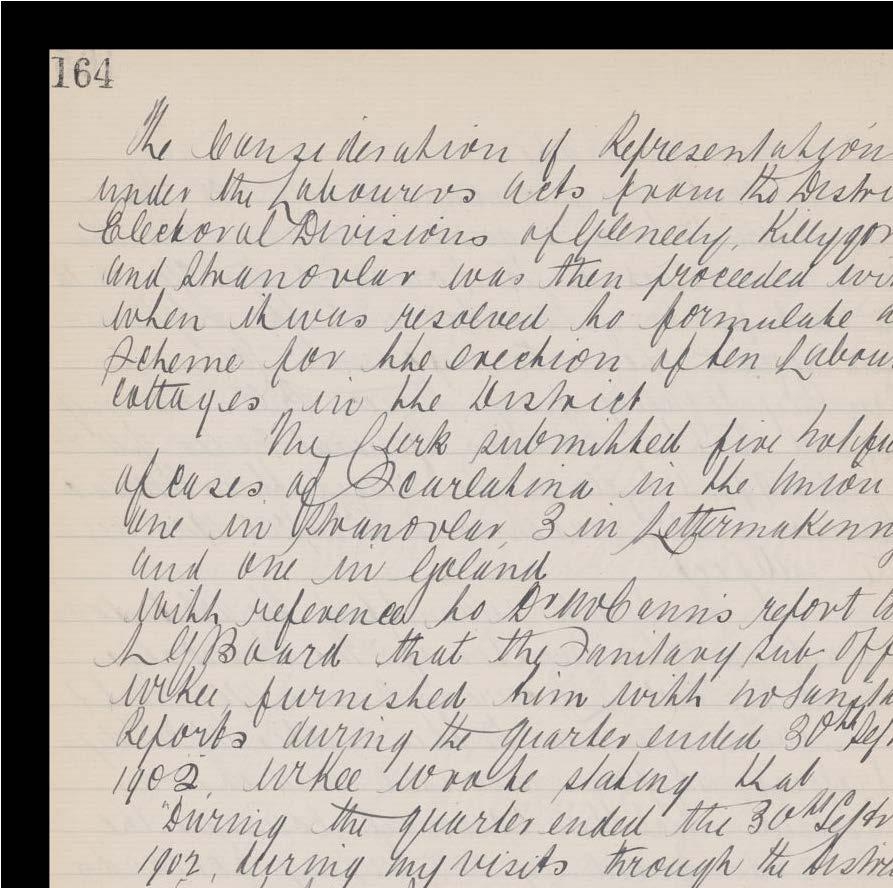 164
The Consideration of Representation
under the Labourers acts from the Distri
Electoral Divisions of Gleneely, Killygor
and Stranorlar was then proceeded wi
when it was resolved to formulate a
Scheme for the erection of ten Labou
cottages in the District
The Clerk submitted five notifi
of cases of Scarlatina in the Union
one in Stranorlar, 3 in Lettermakenn
and one in Goland
With reference to Dr McCann's report
L G Board that the Sanitary Sub Off
furnished him with no Sani
Reports during the quarter ended 30th Sep
1902, wrote stating that
"During the quarter ended the 30th Septr
1902, during my visits through the Distri